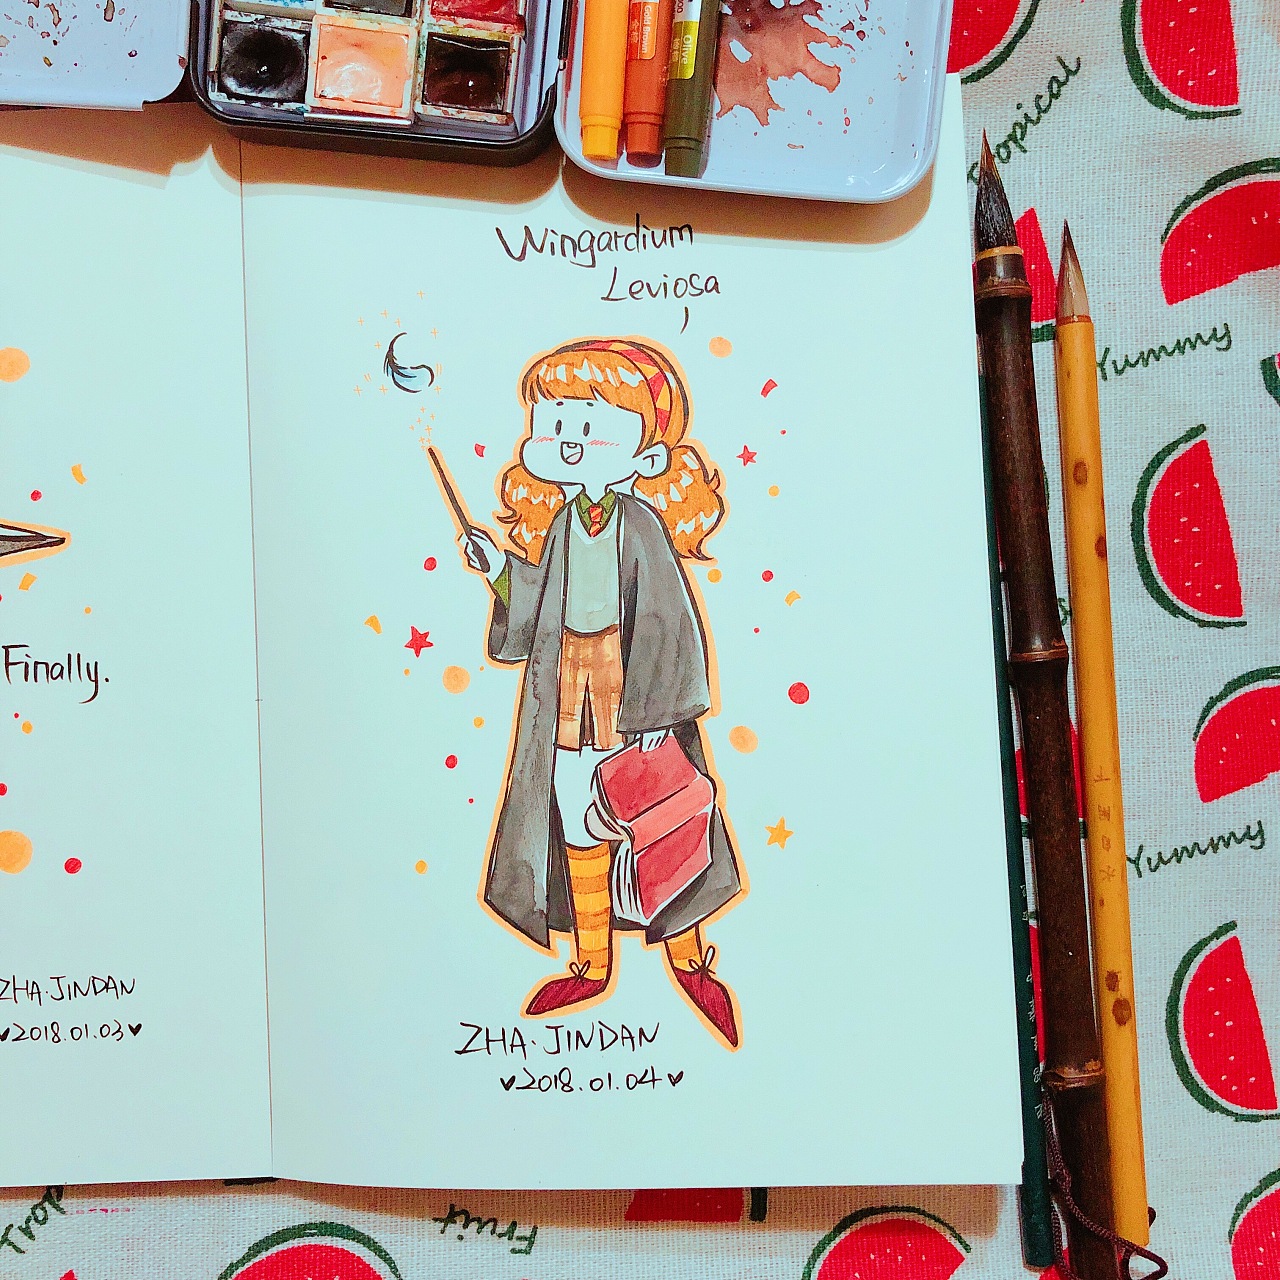 Gold Brown
Olive
Tropical
Wingardium
Leviosa
Yummy
Finally.
Yummy
ZHA·JINDAN
♥2018.01.03♥
ZHA·JINDAN
♥2018.01.04♥
Trop
Fruit